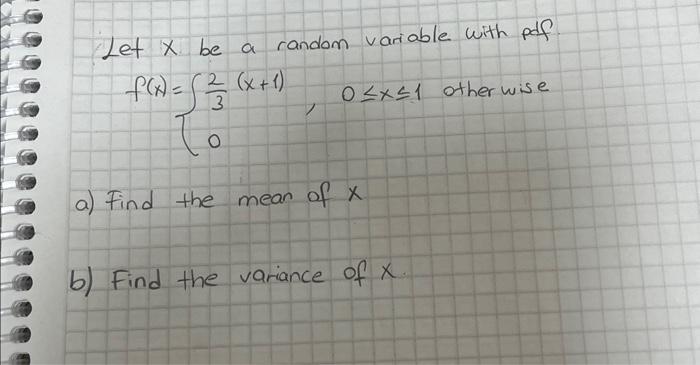 Let X be a random variable with pdf.
f(x) = { 2/3 (x+1) , 0 ≤ x ≤ 1 otherwise
0
a) Find the mean of X
b) Find the variance of X.